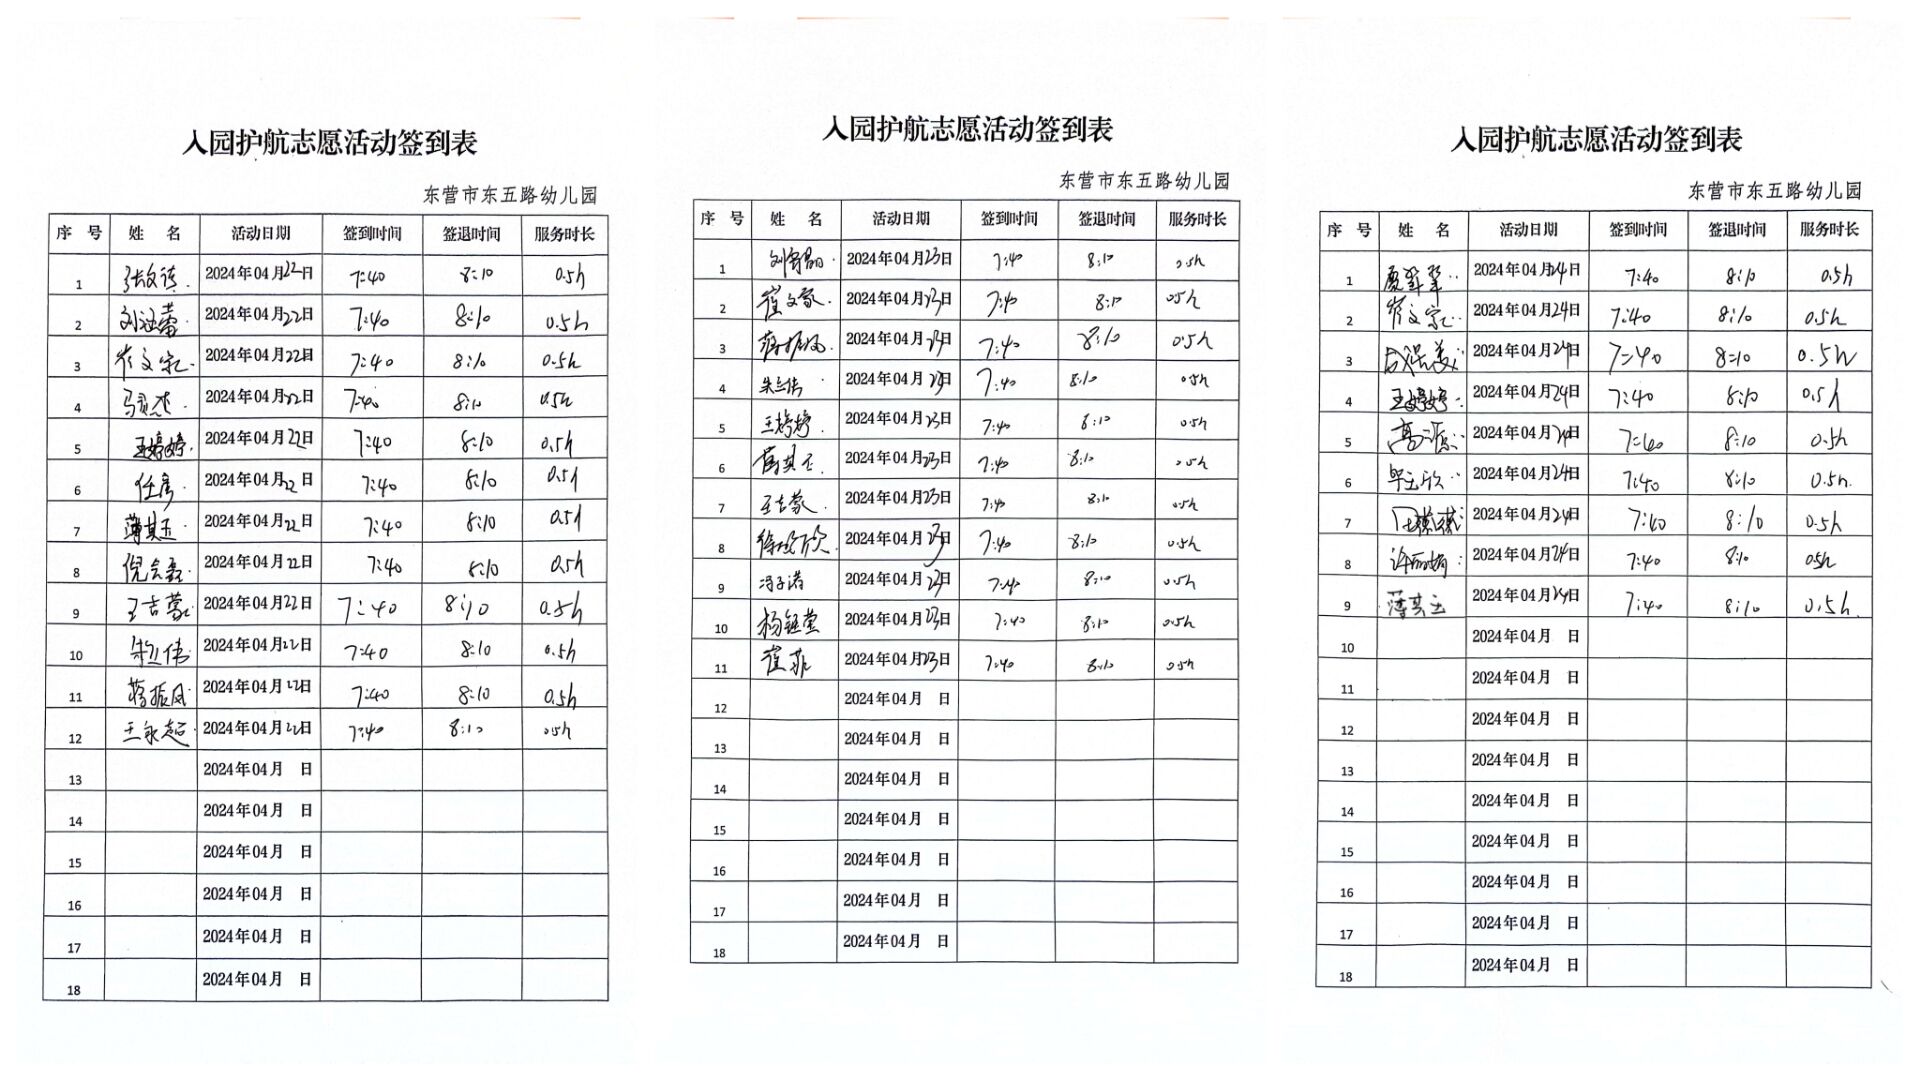 入园护航志愿活动签到表
东营市东五路幼儿园
序 号 姓 名 活动日期 签到时间 签退时间 服务时长
1 2024年04月22日 7:40 8:10 0.5h
2 2024年04月22日 7:40 8:10 0.5h
3 崔文宗 2024年04月22日 7:40 8:10 0.5h
4 2024年04月22日 7:40 8:10 0.5h
5 王婷婷 2024年04月22日 7:40 8:10 0.5h
6 任彦 2024年04月22日 7:40 8:10 0.5h
7 薄其玉 2024年04月22日 7:40 8:10 0.5h
8 2024年04月22日 7:40 8:10 0.5h
9 王吉蒙 2024年04月22日 7:40 8:10 0.5h
10 2024年04月22日 7:40 8:10 0.5h
11 蒋振凤 2024年04月22日 7:40 8:10 0.5h
12 王永超 2024年04月22日 7:40 8:10 0.5h
13 2024年04月 日
14 2024年04月 日
15 2024年04月 日
16 2024年04月 日
17 2024年04月 日
18 2024年04月 日
入园护航志愿活动签到表
东营市东五路幼儿园
序 号 姓 名 活动日期 签到时间 签退时间 服务时长
1 2024年04月23日 7:40 8:10 0.5h
2 2024年04月23日 7:40 8:10 0.5h
3 蒋振凤 2024年04月23日 7:40 8:10 0.5h
4 2024年04月23日 7:40 8:10 0.5h
5 王婷婷 2024年04月23日 7:40 8:10 0.5h
6 2024年04月23日 7:40 8:10 0.5h
7 王吉蒙 2024年04月23日 7:40 8:10 0.5h
8 2024年04月23日 7:40 8:10 0.5h
9 冯子诺 2024年04月23日 7:40 8:10 0.5h
10 杨钰莹 2024年04月23日 7:40 8:10 0.5h
11 崔菲 2024年04月23日 7:40 8:10 0.5h
12 2024年04月 日
13 2024年04月 日
14 2024年04月 日
15 2024年04月 日
16 2024年04月 日
17 2024年04月 日
18 2024年04月 日
入园护航志愿活动签到表
东营市东五路幼儿园
序 号 姓 名 活动日期 签到时间 签退时间 服务时长
1 2024年04月24日 7:40 8:10 0.5h
2 崔文宗 2024年04月24日 7:40 8:10 0.5h
3 2024年04月24日 7:40 8:10 0.5h
4 王婷婷 2024年04月24日 7:40 8:10 0.5h
5 高源 2024年04月24日 7:40 8:10 0.5h
6 2024年04月24日 7:40 8:10 0.5h
7 2024年04月24日 7:40 8:10 0.5h
8 许丽娟 2024年04月24日 7:40 8:10 0.5h
9 薄其玉 2024年04月24日 7:40 8:10 0.5h
10 2024年04月 日
11 2024年04月 日
12 2024年04月 日
13 2024年04月 日
14 2024年04月 日
15 2024年04月 日
16 2024年04月 日
17 2024年04月 日
18 2024年04月 日